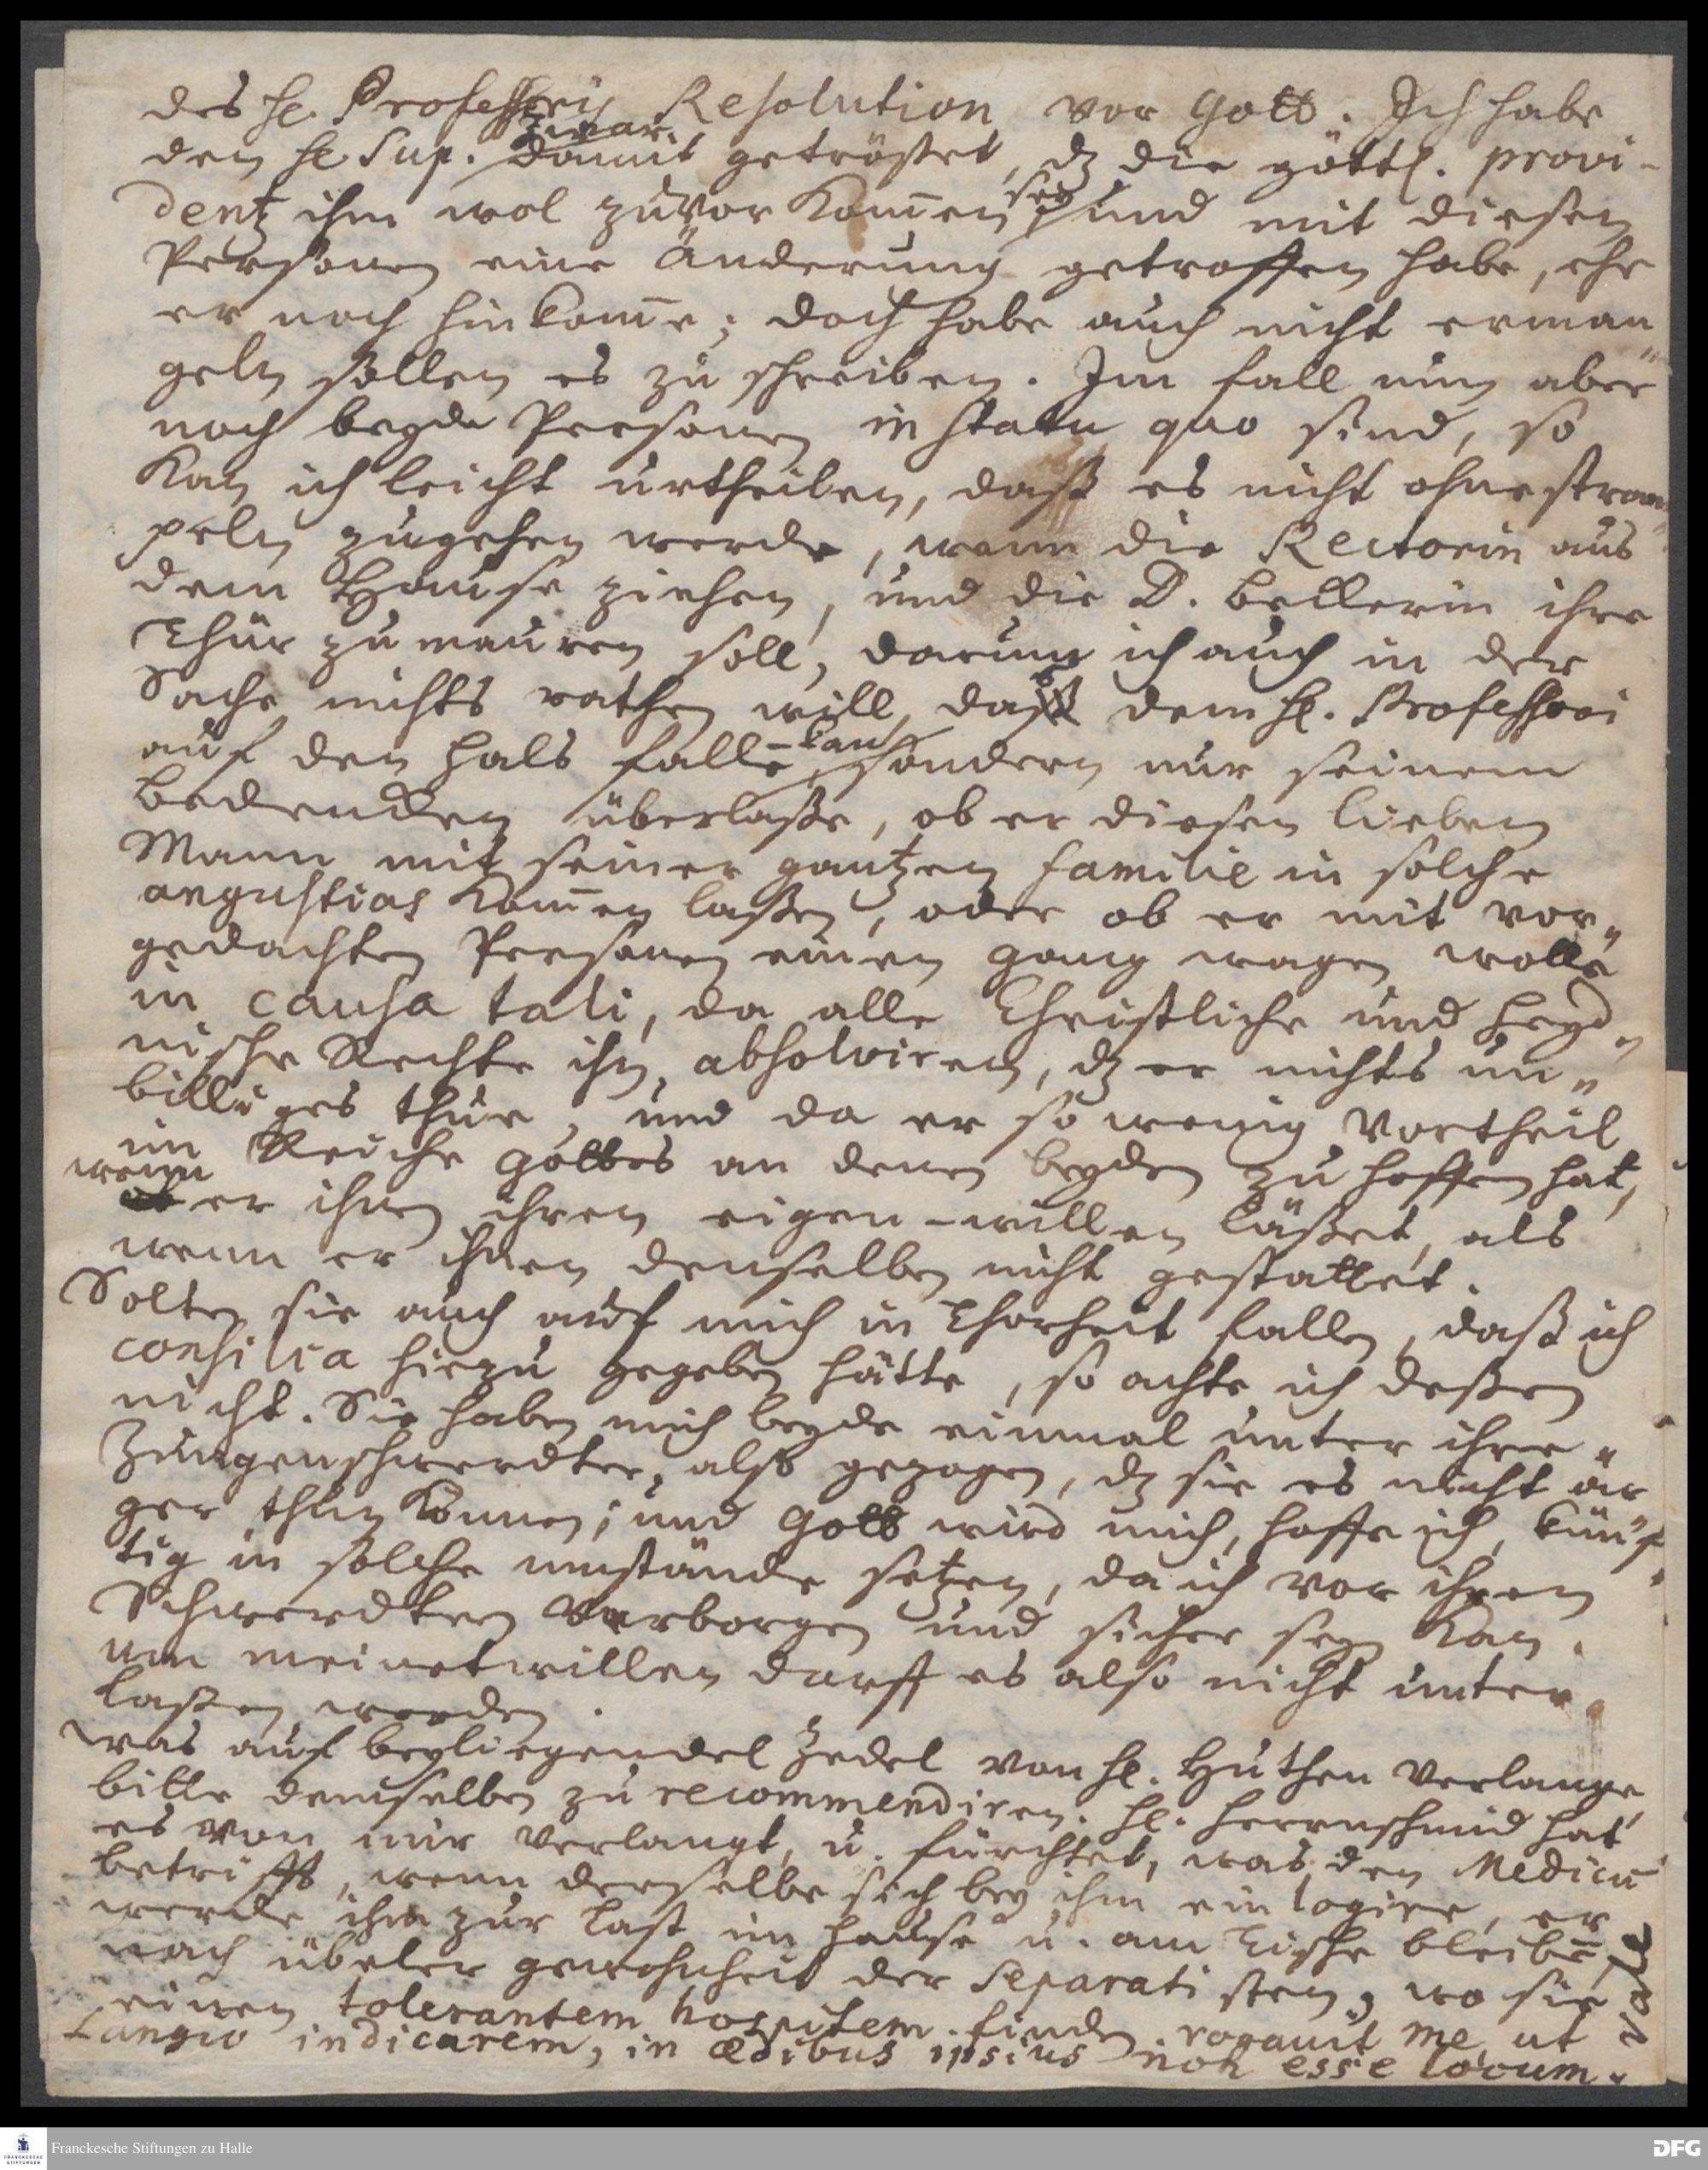 des H. Professoris Resolution vor Gott. Ich habe
den H. Sup. zwar damit getröstet, dz die göttl. provi-
dentz ihm wol zuvor kom̅en sey und mit diesen
Personen eine Änderung getroffen habe, ehe
er noch hinkom̅e; doch habe auch nicht erman-
geln sollen es zu schreiben. Im fall nun aber
noch beyde Personen in statu quo sind, so
kan ich leicht urtheilen, daß es nicht ohne stram-
peln zugehen werde, wenn die Rectorin aus
dem Hause ziehen, und die D. Bellerin ihre
Thür zumauren soll, darum ich auch in der
Sache nichts rathen will, das dem H. Professori
auf den Hals falle kan, sondern nur seinem
bedencken überlaße, ob er diesen lieben
Mann mit seiner gantzen familie in solche
angustias kom̅en laßen, oder ob er mit vor-
gedachten Personen einen gang wagen wolle
in causa tali, da alle Christliche und heyd-
nische Rechte ihn absolviren, dz er nichts un-
billiges thue, und da er so wenig Vortheil
im Reiche Gottes an denen beyden zu hoffen hat,
wenn er ihnen ihren eigen-willen läßet, als
wenn er ihnen denselben nicht gestattet.
Solten sie auch auf mich in Thorheit fallen, daß ich
consilia hiezu gegeben hätte, so achte ich deßen
nicht. Sie haben mich beyde einmal unter ihre
Zungenschwerdter also gezogen, dz sie es nicht är-
ger thun können; und Gott wird mich, hoffe ich, künf-
tig in solche umstände setzen, da ich vor ihren
Schwerdtern verborgen und sicher seyn kan.
um meinetwillen darff es also nicht unter-
laßen werden.
was auf beyliegendel Zedel von H. Huthen verlange
bitte demselben zu recommendiren. H. Herrnschmid hat
es von mir verlangt, u. fürchtet, was den Medicu̅
betrifft, wenn derselbe sich bey ihm ein logire, er
werde ihm zur last im hause u. am Tische bleibe̅,
nach übeler gewohnheit der Separatisten, wo sie
einen tolerantem hospitem finden. rogavit me, ut
Langio indicarem, in ædibus ipsius non esse locum.
Vale
Franckesche Stiftungen zu Halle
DFG